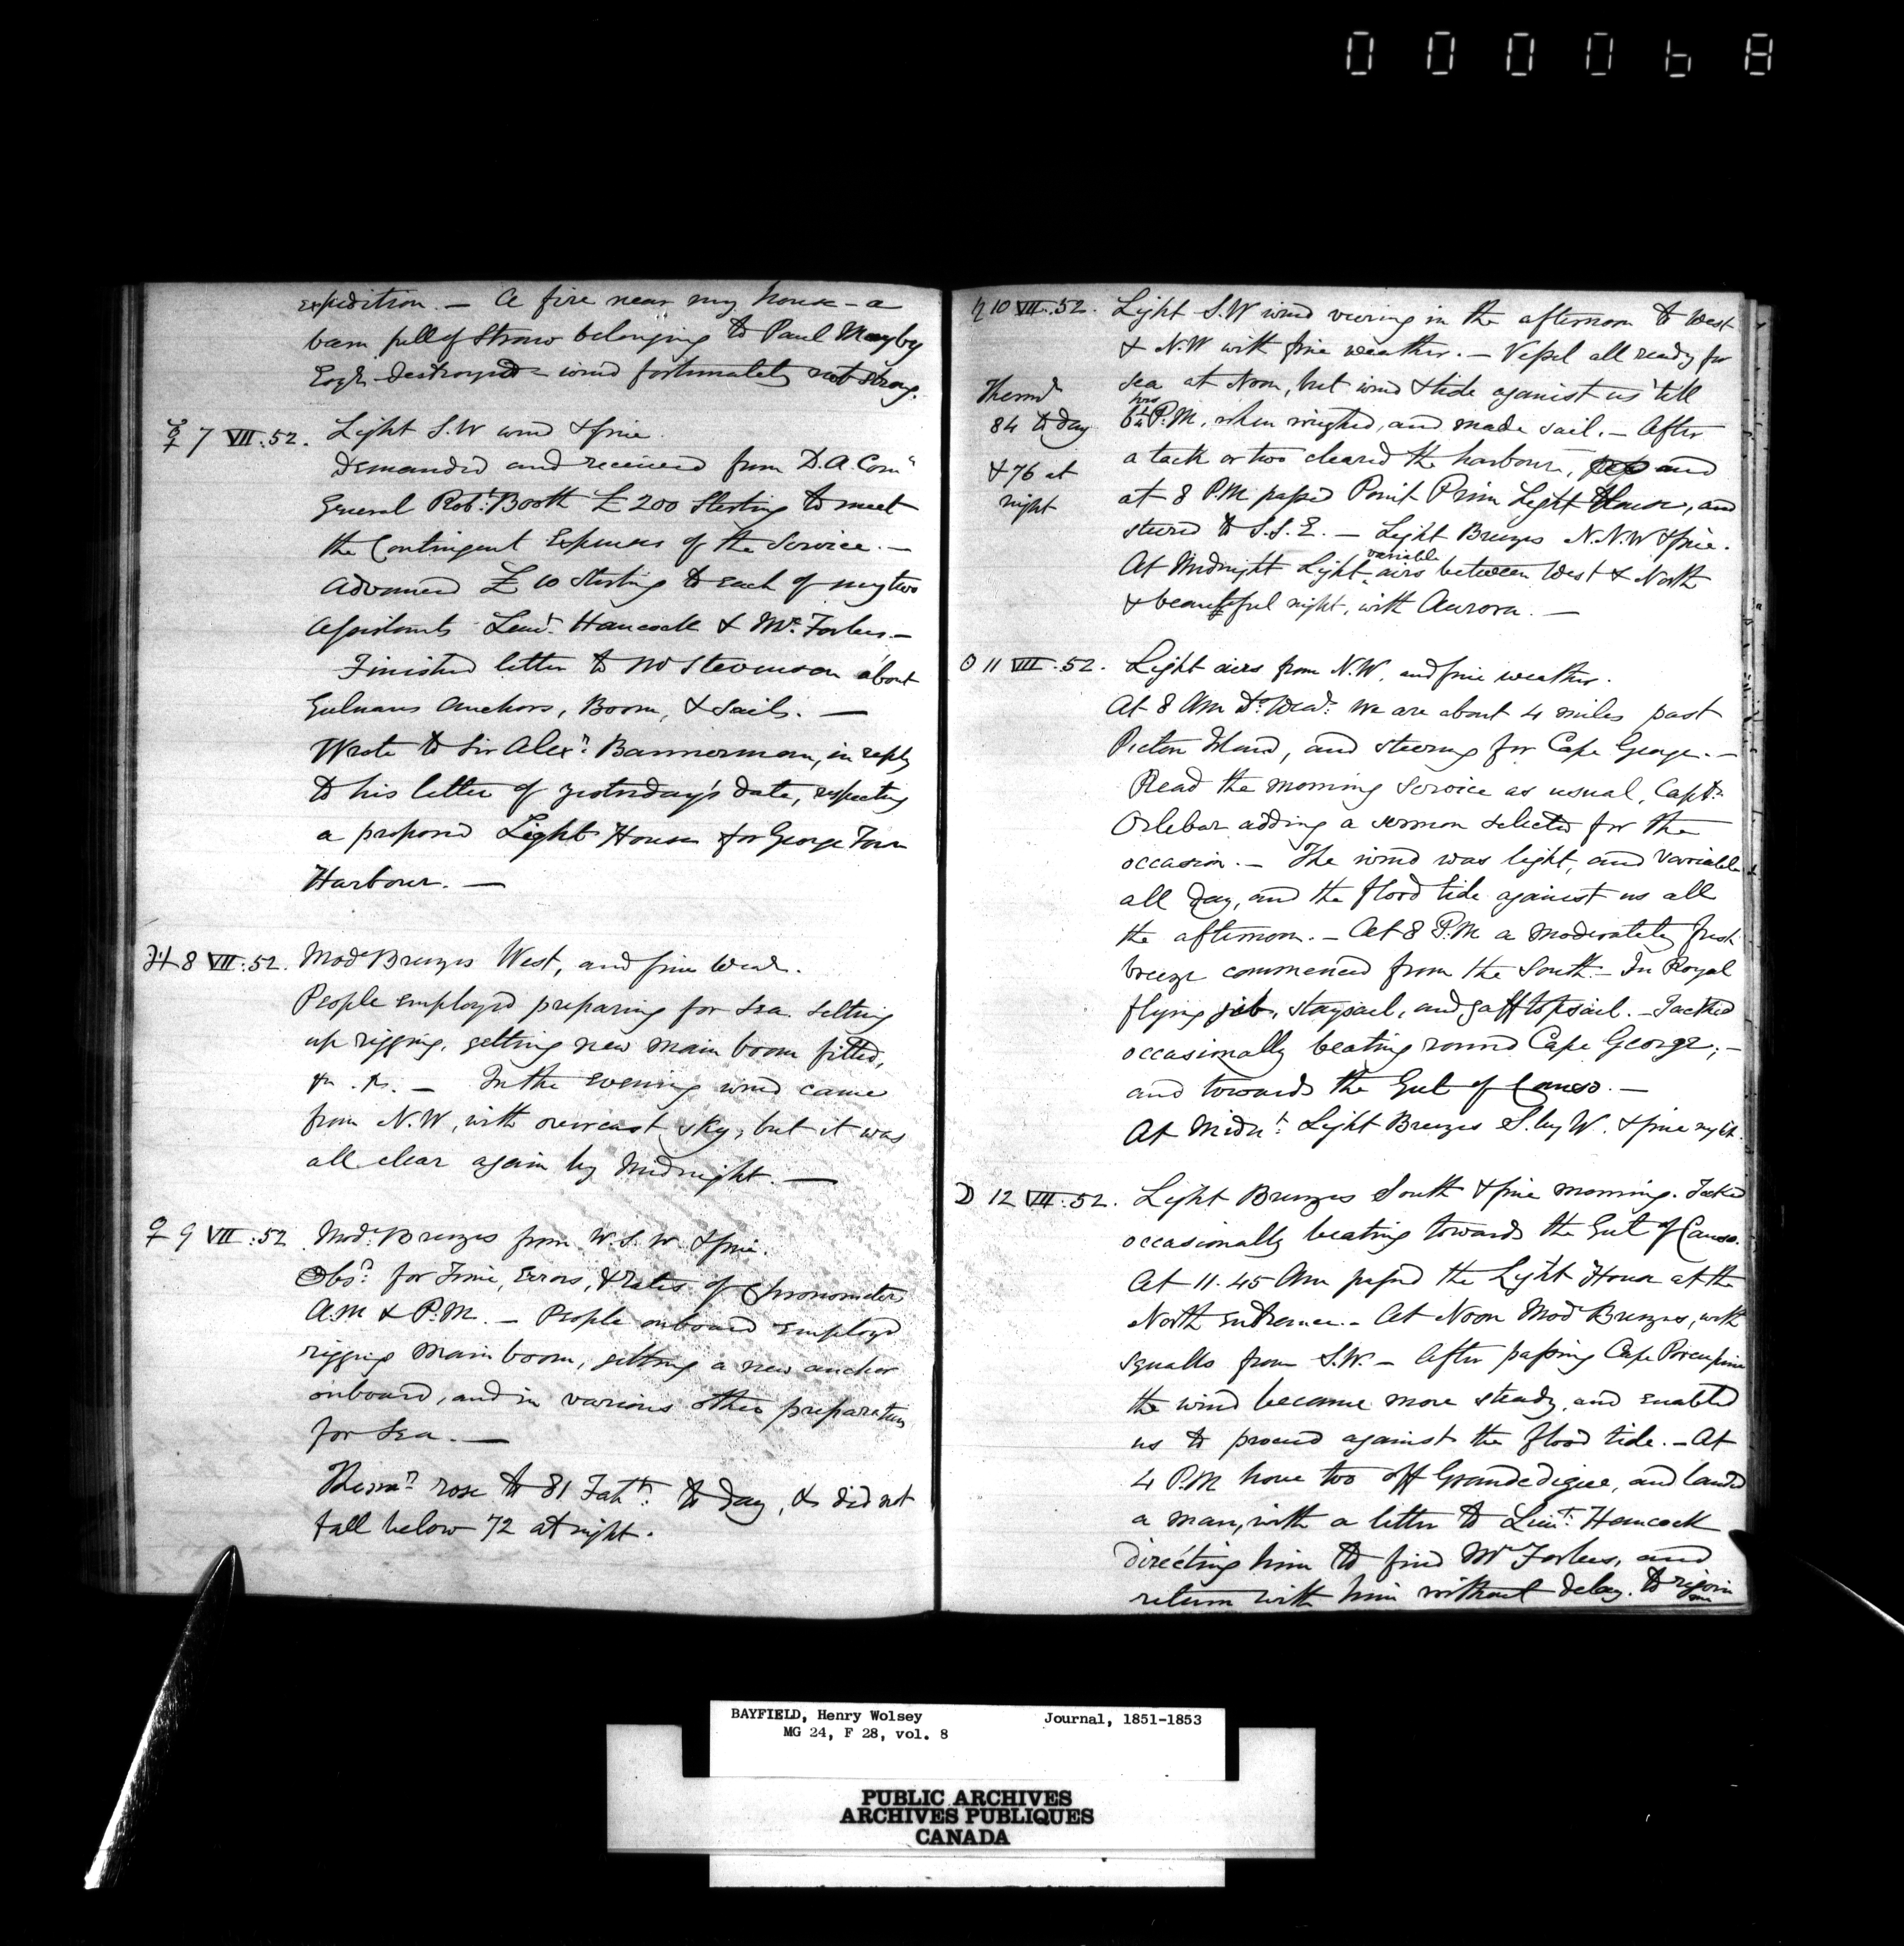 000068
expedition. — A fire near my house — a
barn full of Straw belonging to Paul Mayby
Esqr. destroyed — wind fortunately not strong.
☿ 7 VII. 52. Light S.W wind & fine.
Demanded and received from D. A. Comy
General Robt. Booth £200 Sterling to meet
the Contingent Expenses of the Service. —
Advanced £10 Sterling to each of my two
Assistants Lieut. Hancock & Mr. Forbes. —
Finished letter to Mr Stevenson about
Gulnare Anchors, Boom, & Sails. —
Wrote to Sir Alexr. Bannerman, in reply
to his letter of yesterday's date, respecting
a proposed Light House for George Town
Harbour. —
♃ 8 VII. 52. Modt Breezes West, and fine Wear.
People employed preparing for Sea. Setting
up rigging, getting new main boom fitted,
&c. &c. — In the Evening wind came
from N.W, with overcast sky, but it was
all clear again by Midnight. —
♀ 9 VII. 52 Modt. Breezes from W.S.W. & fine.
Obsd. for Time, Errors, & Rates of Chronometers
A.M & P.M. — People onboard employed
rigging Main boom, getting a new anchor
onboard, and in various other preparations
for Sea. —
Thermr. rose to 81 Faht. to day, & did not
fall below 72 at night.
♄ 10 VII. 52. Light S.W wind veering in the afternoon to West
& N.W with fine weather. — Vessel all ready for
Thermr
84 to day
& 76 at
night
sea at Noon, but wind & tide against us 'till
hrs
6¼ P.M, when weighed, and made sail. — After
a tack or two cleared the harbour, and
at 8 PM passed Point Prim Light House, and
steered to S.S.E. — Light Breezes N.N.W & fine.
variable
At Midnight Light airs between West & North
& beautiful night, with Aurora. —
☉ 11 VIII. 52. Light airs from N.W. and fine weather.
At 8 AM Do. Wear. we are about 4 miles past
Picton Island, and steering for Cape George. —
Read the morning service as usual, Captn.
Orlebar adding a sermon selected for the
occasion. — The wind was light, and variable
all day, and the flood tide against us all
the afternoon. — At 8 P.M a moderately fresh
breeze commenced from the South. — In Royal
flying jib, staysail, and gaff topsail. — Tacked
occasionally beating round Cape George; —
and towards the Gut of Canso. —
At Midnt. Light Breezes S. by W. & fine night.
☽ 12 VIII. 52. Light Breezes South & fine morning. Tacked
occasionally beating towards the Gut of Canso.
At 11.45 AM passed the Light House at the
North entrance. — At Noon Modt Breezes, with
squalls from S.W. — After passing Cape Porcupine
the wind became more steady, and enabled
us to proceed against the flood tide. — At
4 P.M hove too off Grandedigue, and landed
a man, with a letter to Lieut. Hancock
directing him to find Mr Forbes, and
return with him without delay. to rejoin
me
BAYFIELD, Henry Wolsey Journal, 1851-1853
MG 24, F 28, vol. 8
PUBLIC ARCHIVES
ARCHIVES PUBLIQUES
CANADA